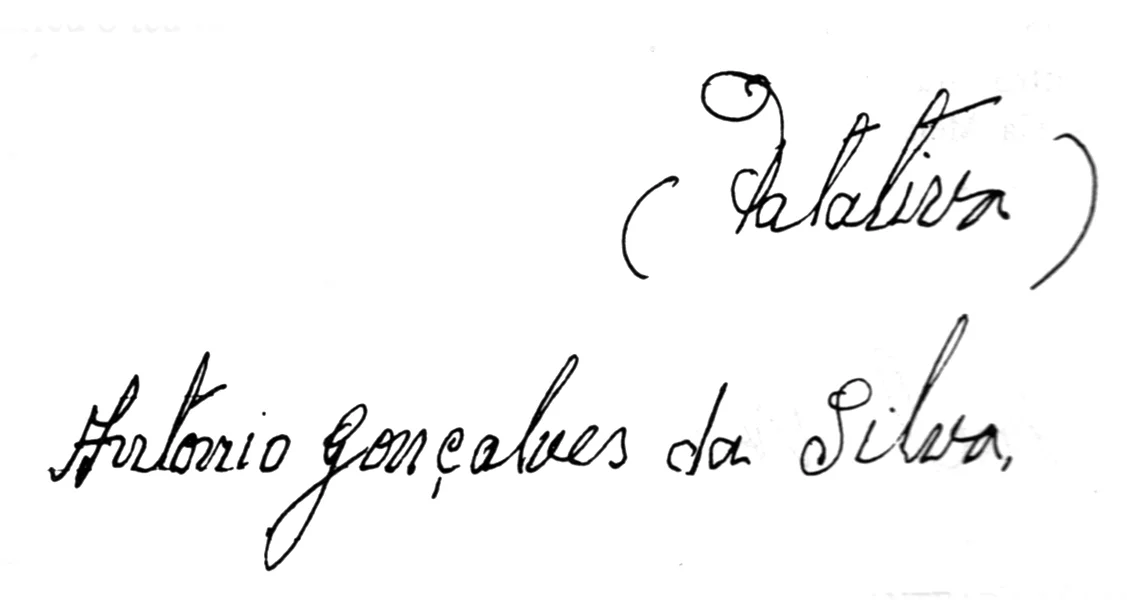 (Patativa)
Antonio Gonçalves da Silva,